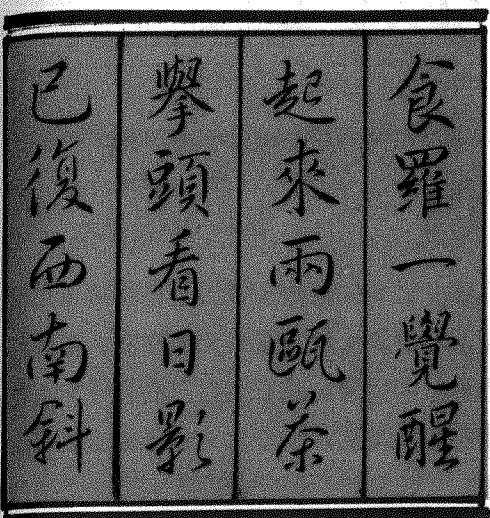 食罷一覺醒
起來兩甌茶
舉頭看日影
已復西南斜